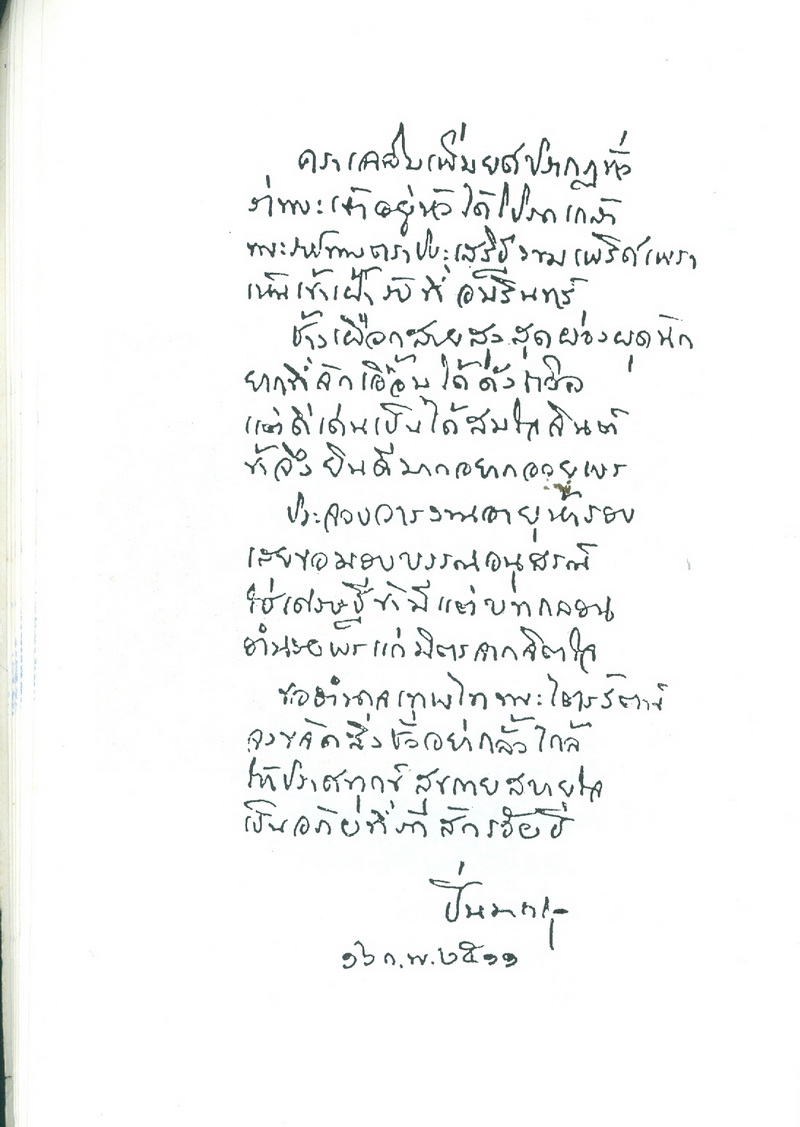 คราเฉลิมเพิ่มยศปรากฏทั่ว
ว่าพระเจ้าอยู่หัวได้โปรดเกล้า
พระราชทานตราประเสริฐงามเพริศเพรา
เห็นเข้าเฝ้ารับที่อัมรินทร์
ช้างเผือกสายสูงสุดผ่องผุดนัก
ยากที่จักเอื้อมได้ดั่งถวิล
แต่ดีเด่นเป็นได้สมใจจินต์
ข้าจึงยินดีมากอยากอวยพร
ประจวบวารงานอายุห้ารอบ
เลยขอมอบบรรณอนุสรณ์
ใช่เศรษฐีข้ามีแต่บทกลอน
อำนวยพรแก่มิตรจากจิตใจ
ขออำนาจเทพไทพระไตรรัตน์
จงขจัดสิ่งชั่วอย่ากลั้วใกล้
ให้ปราศทุกข์สุขกายสบายใจ
เป็นอภัย ที่ สักร้อยปี
ปิ่น มาลากุล
๑๖ ก.พ. ๒๕๑๑